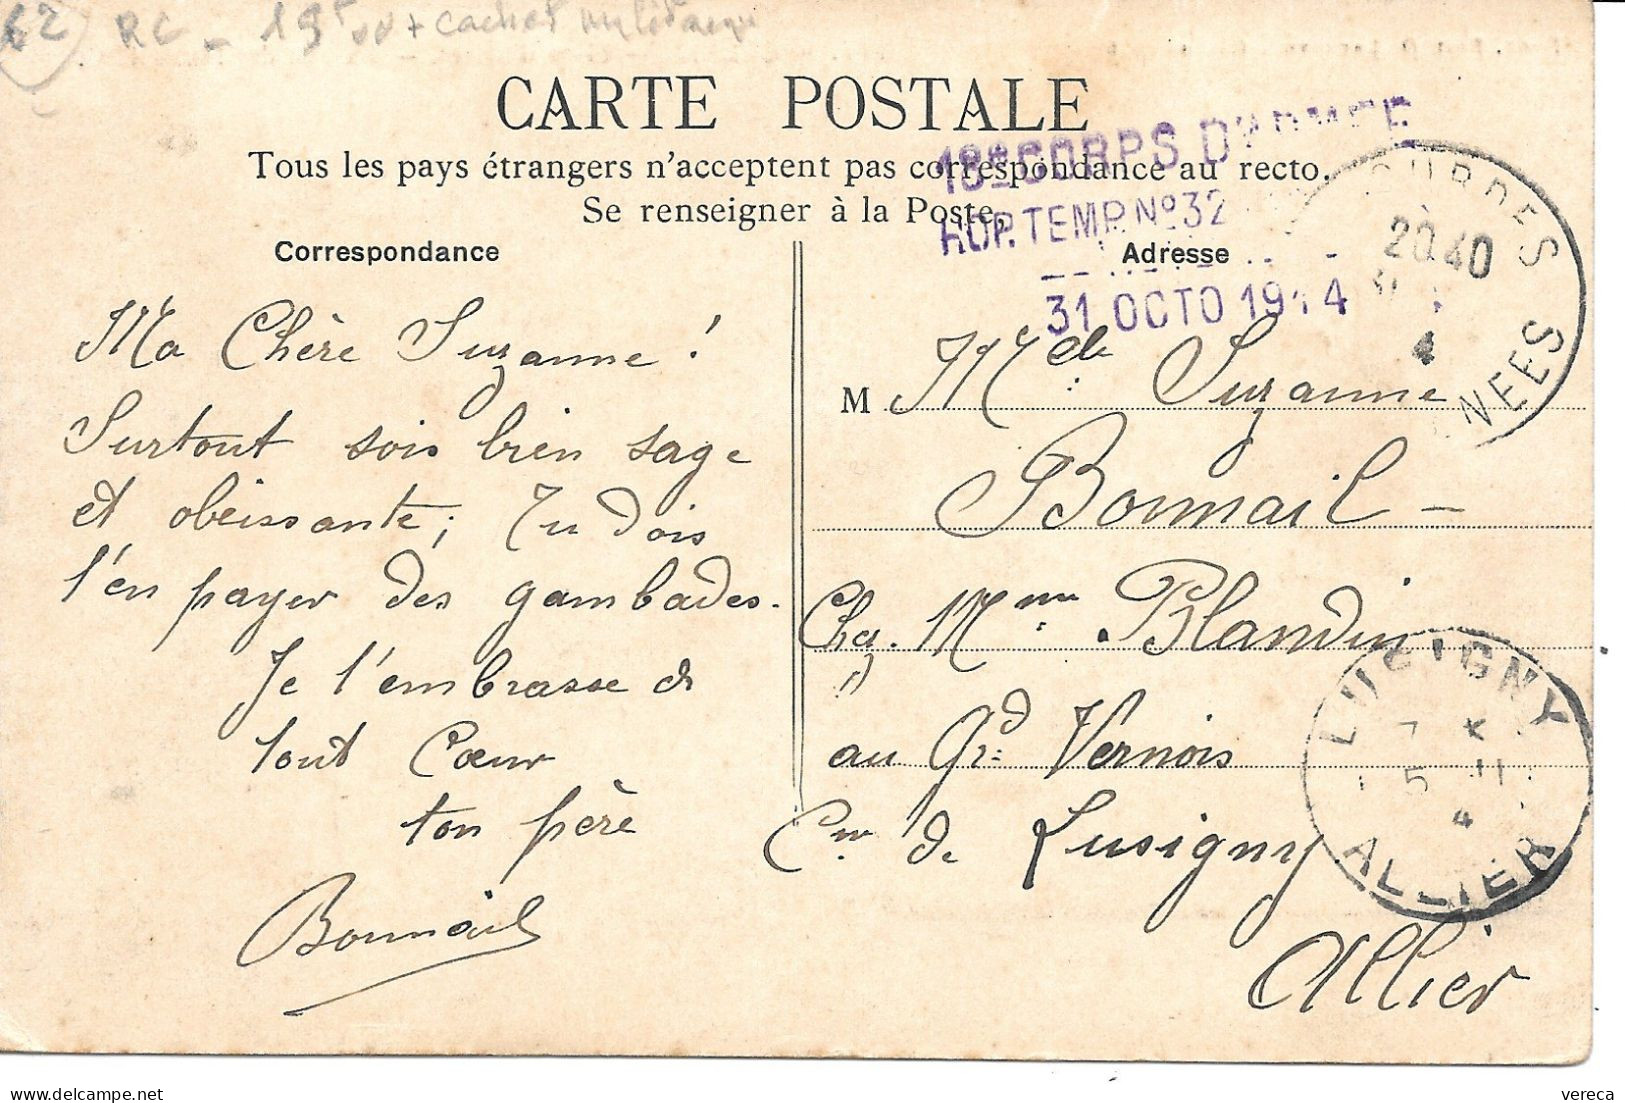 62 RC - 19 + cachet militaire
CARTE POSTALE
Tous les pays étrangers n'acceptent pas correspondance au recto.
Se renseigner à la Poste.
18e CORPS D'ARMEE
HOP. TEMP. No 32
31 OCTO 1914
OURDES
20 40
4
NEES
Correspondance
Ma Chère Suzanne !
Surtout sois bien sage
et obéissante ; Tu dois
t'en payer des gambades.
Je t'embrasse de
tout Cœur
ton père
Bonnail
Adresse
M Melle Suzanne
Bonnail -
Chez Mme Blandin
au Gd Vernois
Cne de Lusigny
Allier
LUSIGNY
5 11
4
ALLIER
vereca